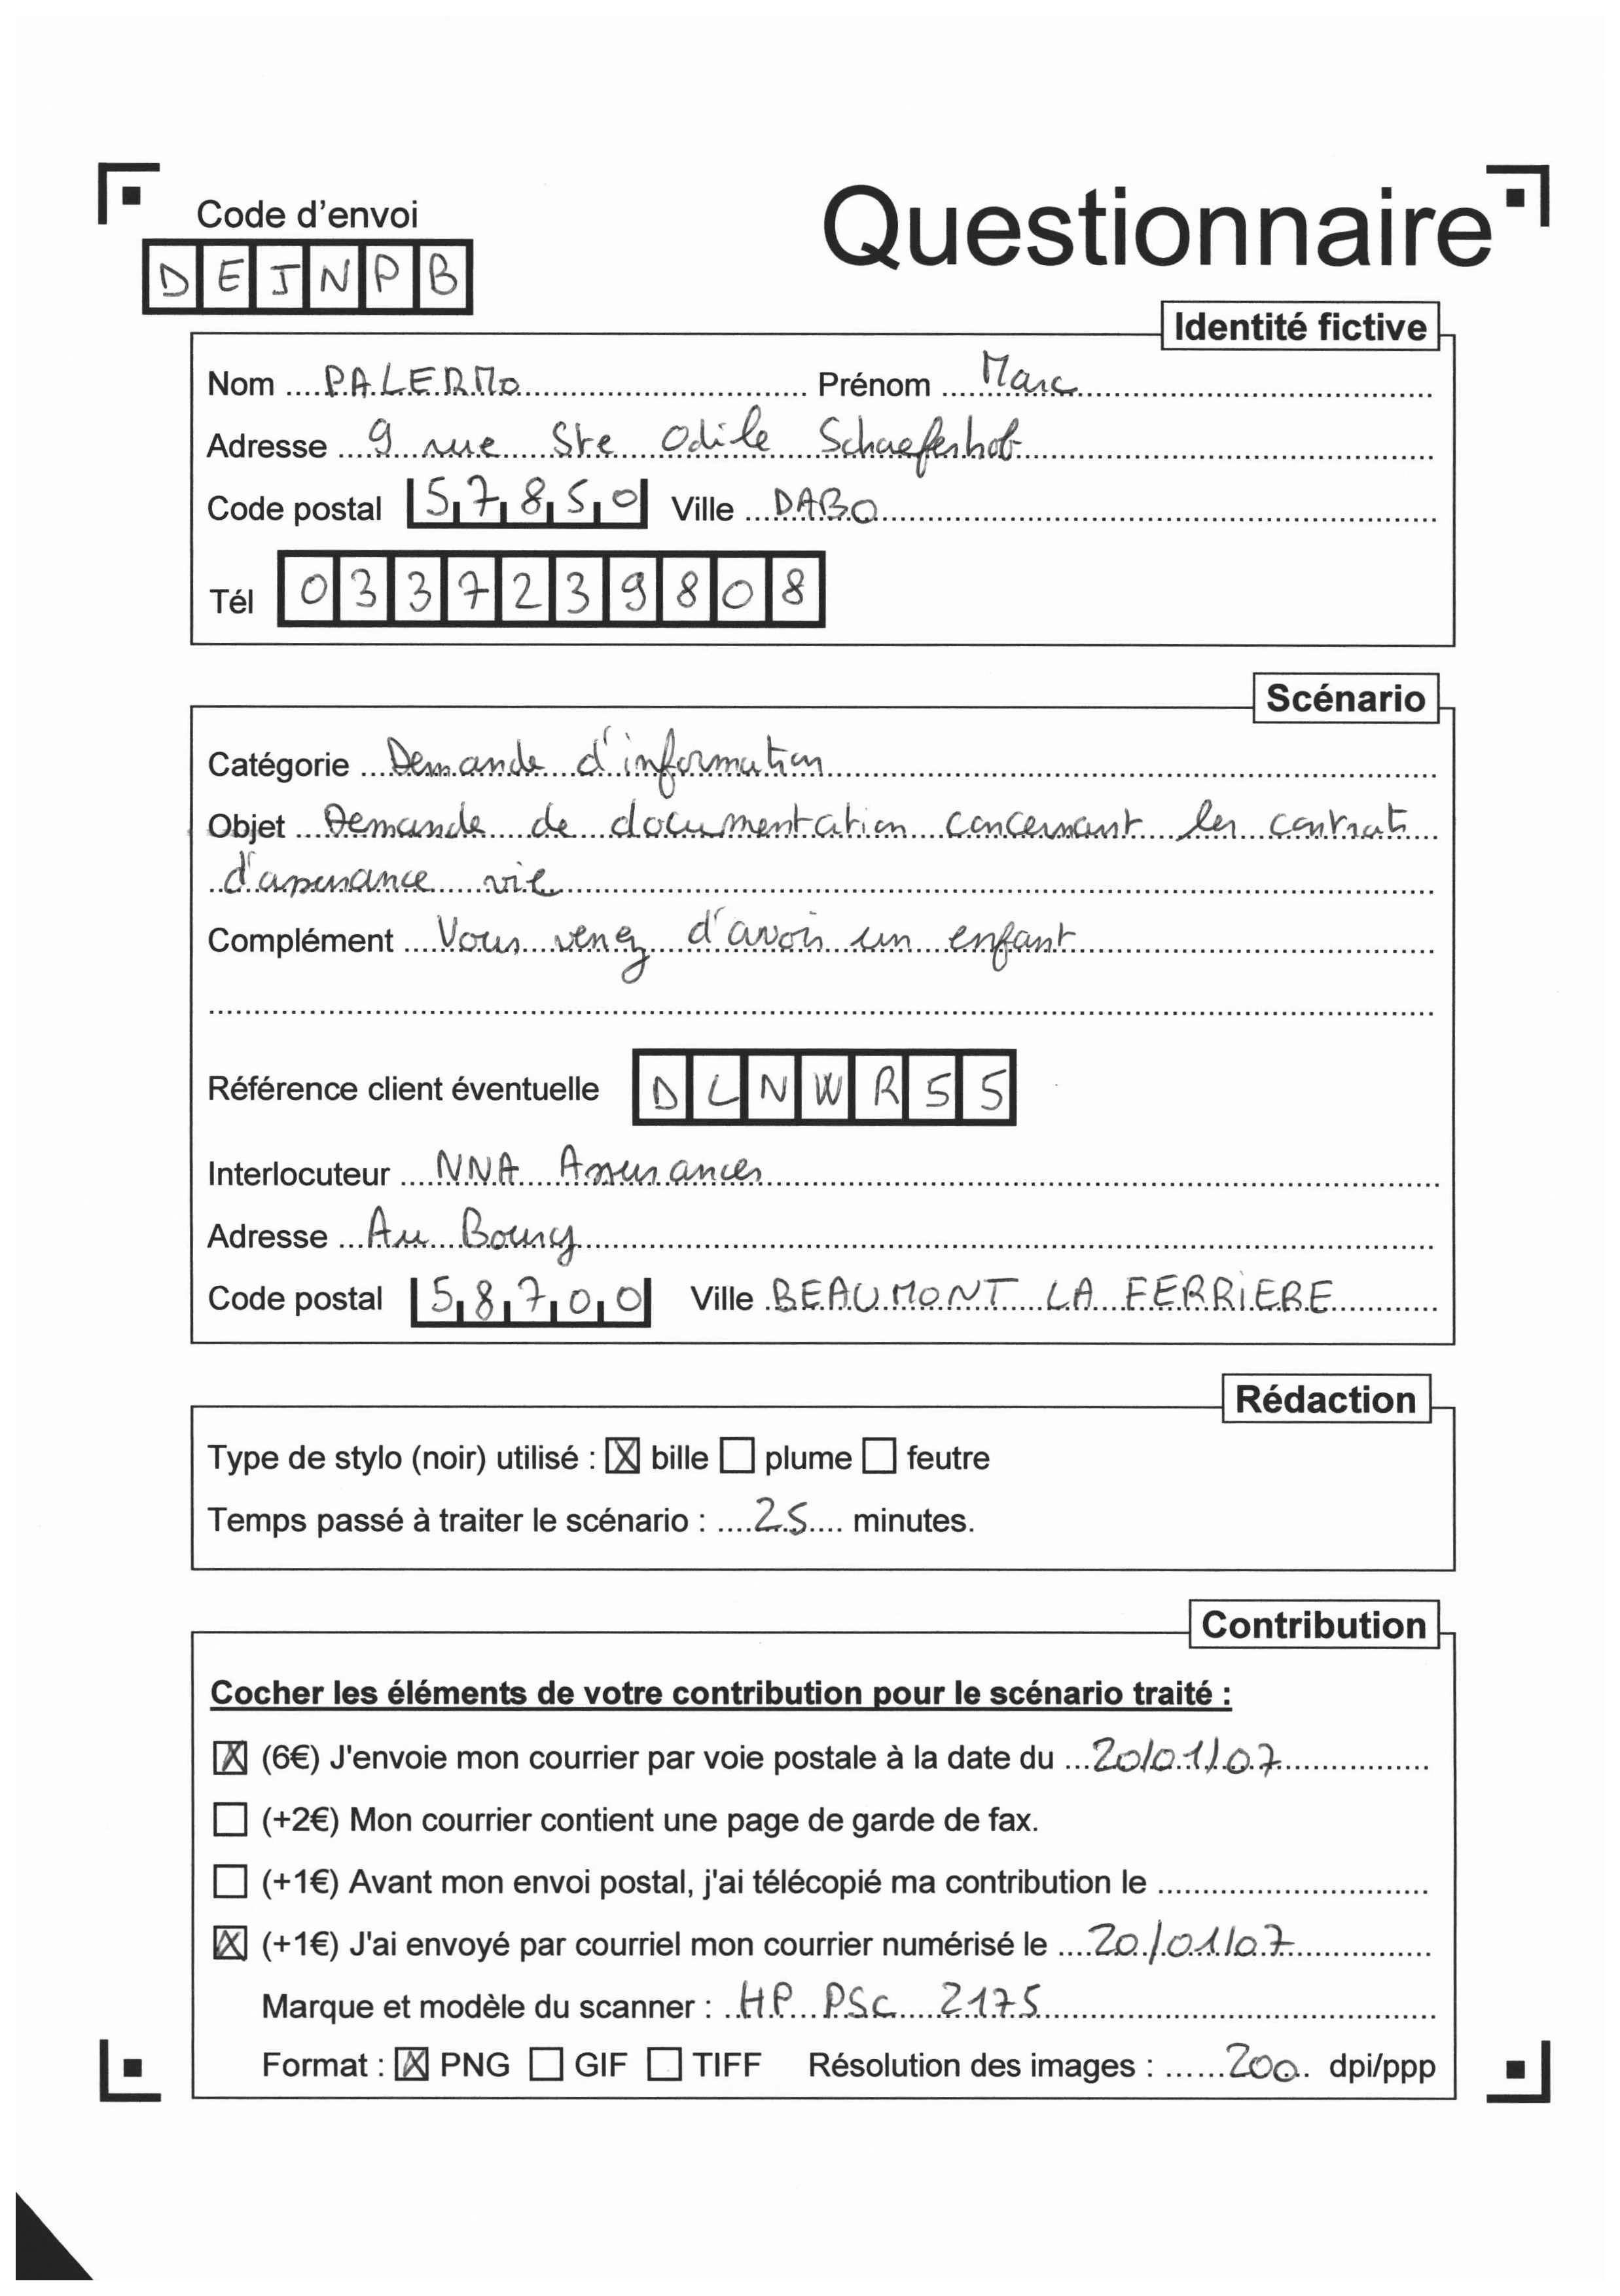 Code d'envoi
Questionnaire
DEJNPB
Identité fictive
Nom PALERMO Prénom Marc
Adresse 9 rue Ste Odile Schaeferhof
Code postal 57850 Ville DABO
Tél 0337239808
Scénario
Catégorie Demande d'information
Objet Demande de documentation concernant les contrats
d'assurance vie
Complément Vous venez d'avoir un enfant
Référence client éventuelle DLNWRS5
Interlocuteur NNA Assurances
Adresse Au Bourg
Code postal 58700 Ville BEAUMONT LA FERRIERE
Rédaction
Type de stylo (noir) utilisé : ☒ bille ☐ plume ☐ feutre
Temps passé à traiter le scénario : 25 minutes.
Contribution
Cocher les éléments de votre contribution pour le scénario traité :
☒ (6€) J'envoie mon courrier par voie postale à la date du 20/01/07
☐ (+2€) Mon courrier contient une page de garde de fax.
☐ (+1€) Avant mon envoi postal, j'ai télécopié ma contribution le
☒ (+1€) J'ai envoyé par courriel mon courrier numérisé le 20/01/07
Marque et modèle du scanner : HP PSC 2175
Format : ☒ PNG ☐ GIF ☐ TIFF Résolution des images : 200 dpi/ppp